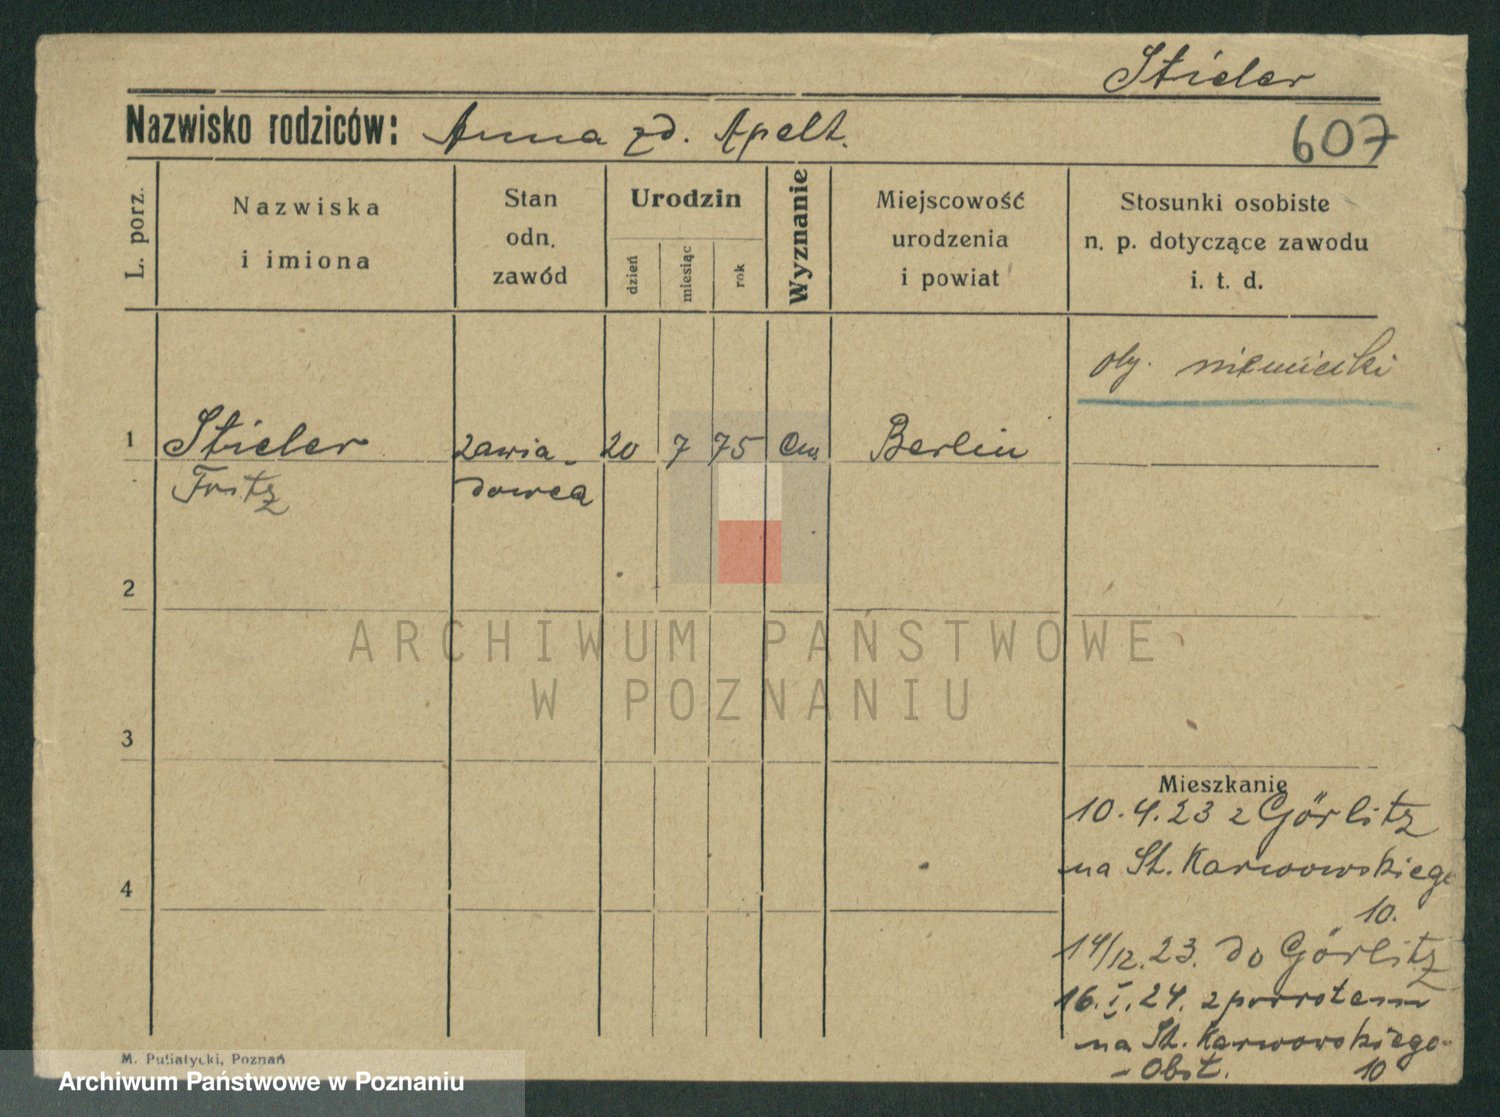 Stieler
Nazwisko rodziców: Anna zd. Apelt.
607
L. porz.
Nazwiska
i imiona
Stan
odn.
zawód
Urodzin
dzień
miesiąc
rok
Wyznanie
Miejscowość
urodzenia
i powiat
Stosunki osobiste
n. p. dotyczące zawodu
i. t. d.
oby. niemiecki
1 Stieler zawia- 20 7 75 Ew Berlin
Fritz dowca
2
ARCHIWUM PAŃSTWOWE
W POZNANIU
3
Mieszkanie
10.4.23 z Görlitz
na St. Karwowskiego
10.
4
14/12.23. do Görlitz
16.I.24. z powrotem
na St. Karwowskiego
- Obst. 10
M. Putiatycki, Poznań
Archiwum Państwowe w Poznaniu